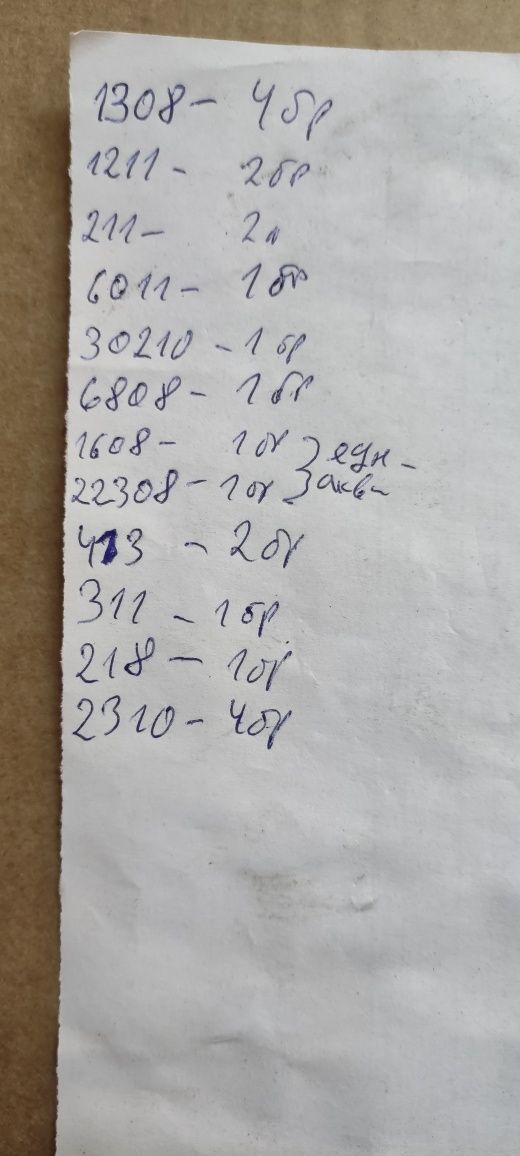 1308 - 4 бр
1211 - 2 бр
211 - 2
6011 - 1 бр
30210 - 1 бр
6808 - 1 бр
1608 - 1 бр
22308 - 1 бр
413 - 2 бр
311 - 1 бр
218 - 1 бр
2310 - 4 бр